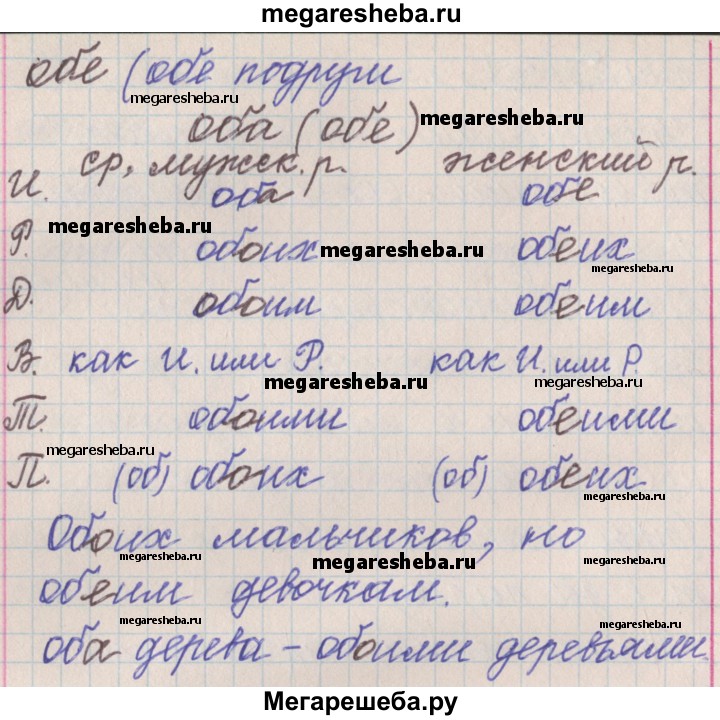 megaresheba.ru
обе (обе подруги
megaresheba.ru
оба (обе) megaresheba.ru
ср, мужск. р. женский р.
И. оба обе
megaresheba.ru
Р. обоих megaresheba.ru обеих
megaresheba.ru
Д. обоим обеим
megaresheba.ru
В. как И. или Р. как И. или Р.
megaresheba.ru megaresheba.ru
Т. обоими обеими
megaresheba.ru
П. (об) обоих (об) обеих
megaresheba.ru
Обоих мальчиков, но
megaresheba.ru megaresheba.ru megaresheba.ru
обеим девочкам.
megaresheba.ru megaresheba.ru
оба дерева – обоими деревьями.
Мегарешеба.ру